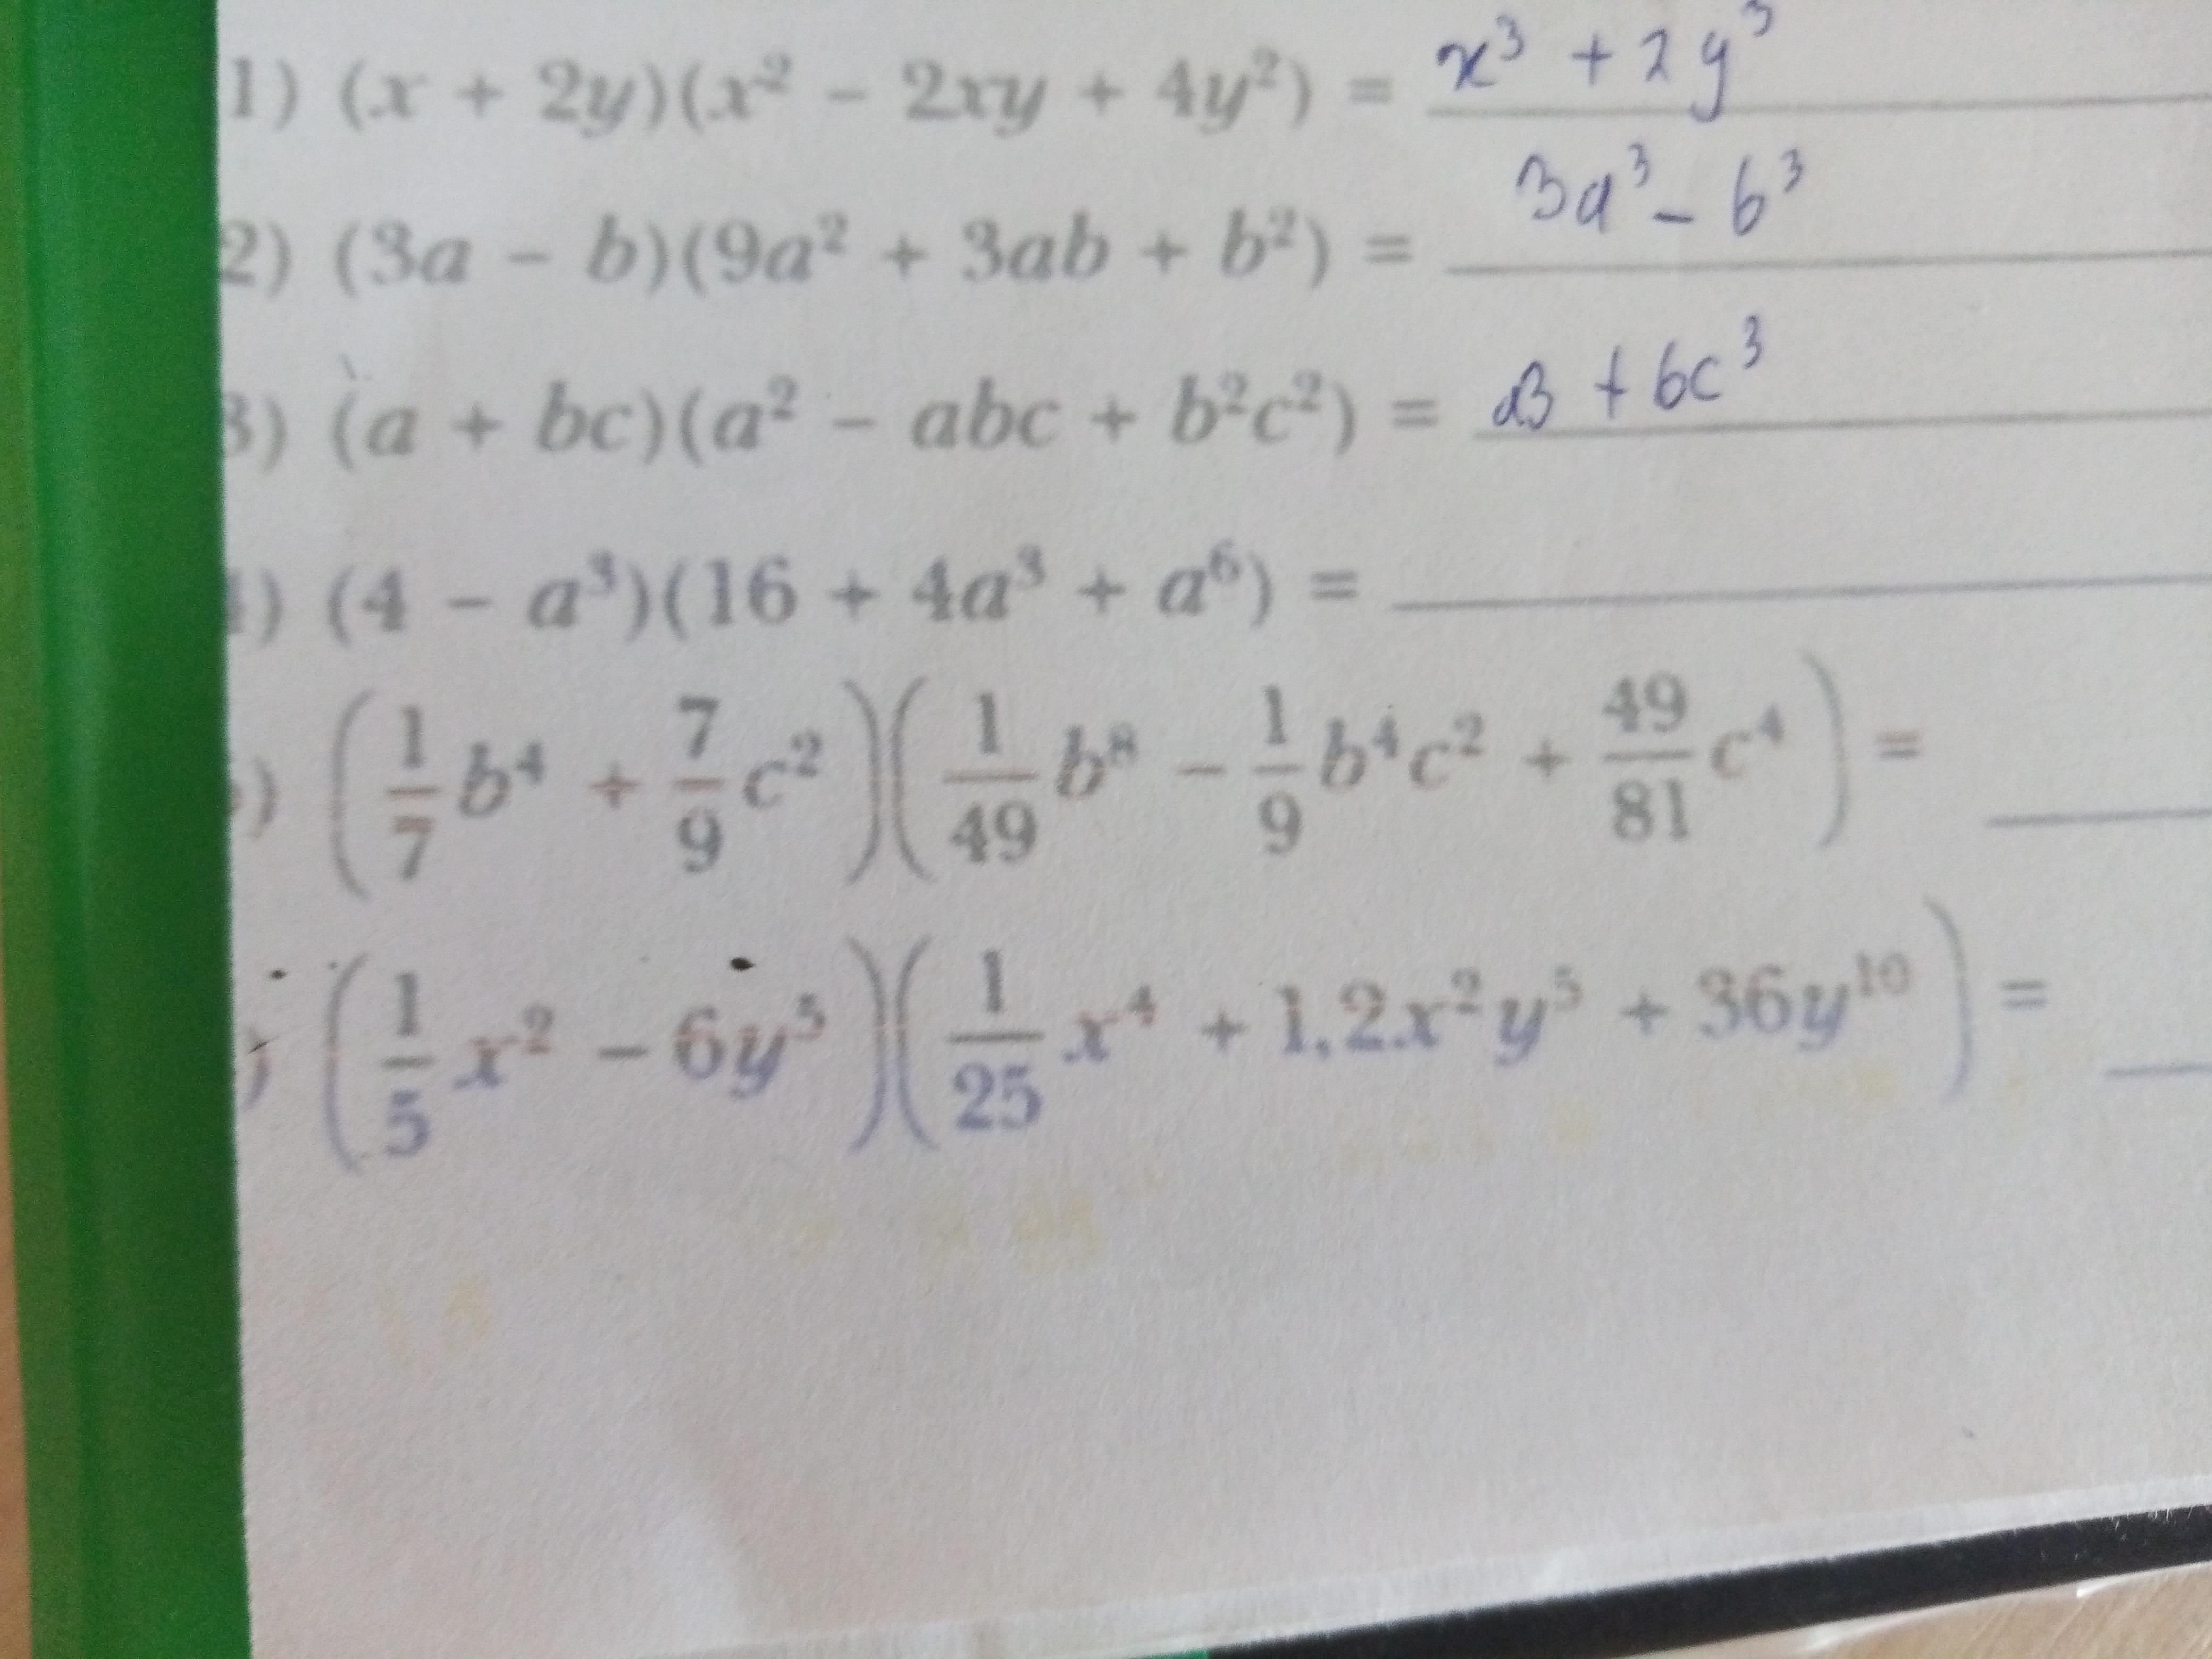 1) (x + 2y)(x² − 2xy + 4y²) = x³ + 2y³
2) (3a − b)(9a² + 3ab + b²) = 3a³ − b³
3) (a + bc)(a² − abc + b²c²) = a3 + bc³
4) (4 − a³)(16 + 4a³ + a⁶) =
) (1/7 b⁴ + 7/9 c²)(1/49 b⁸ − 1/9 b⁴c² + 49/81 c⁴) =
) (1/5 x² − 6y⁵)(1/25 x⁴ + 1,2x²y⁵ + 36y¹⁰) =